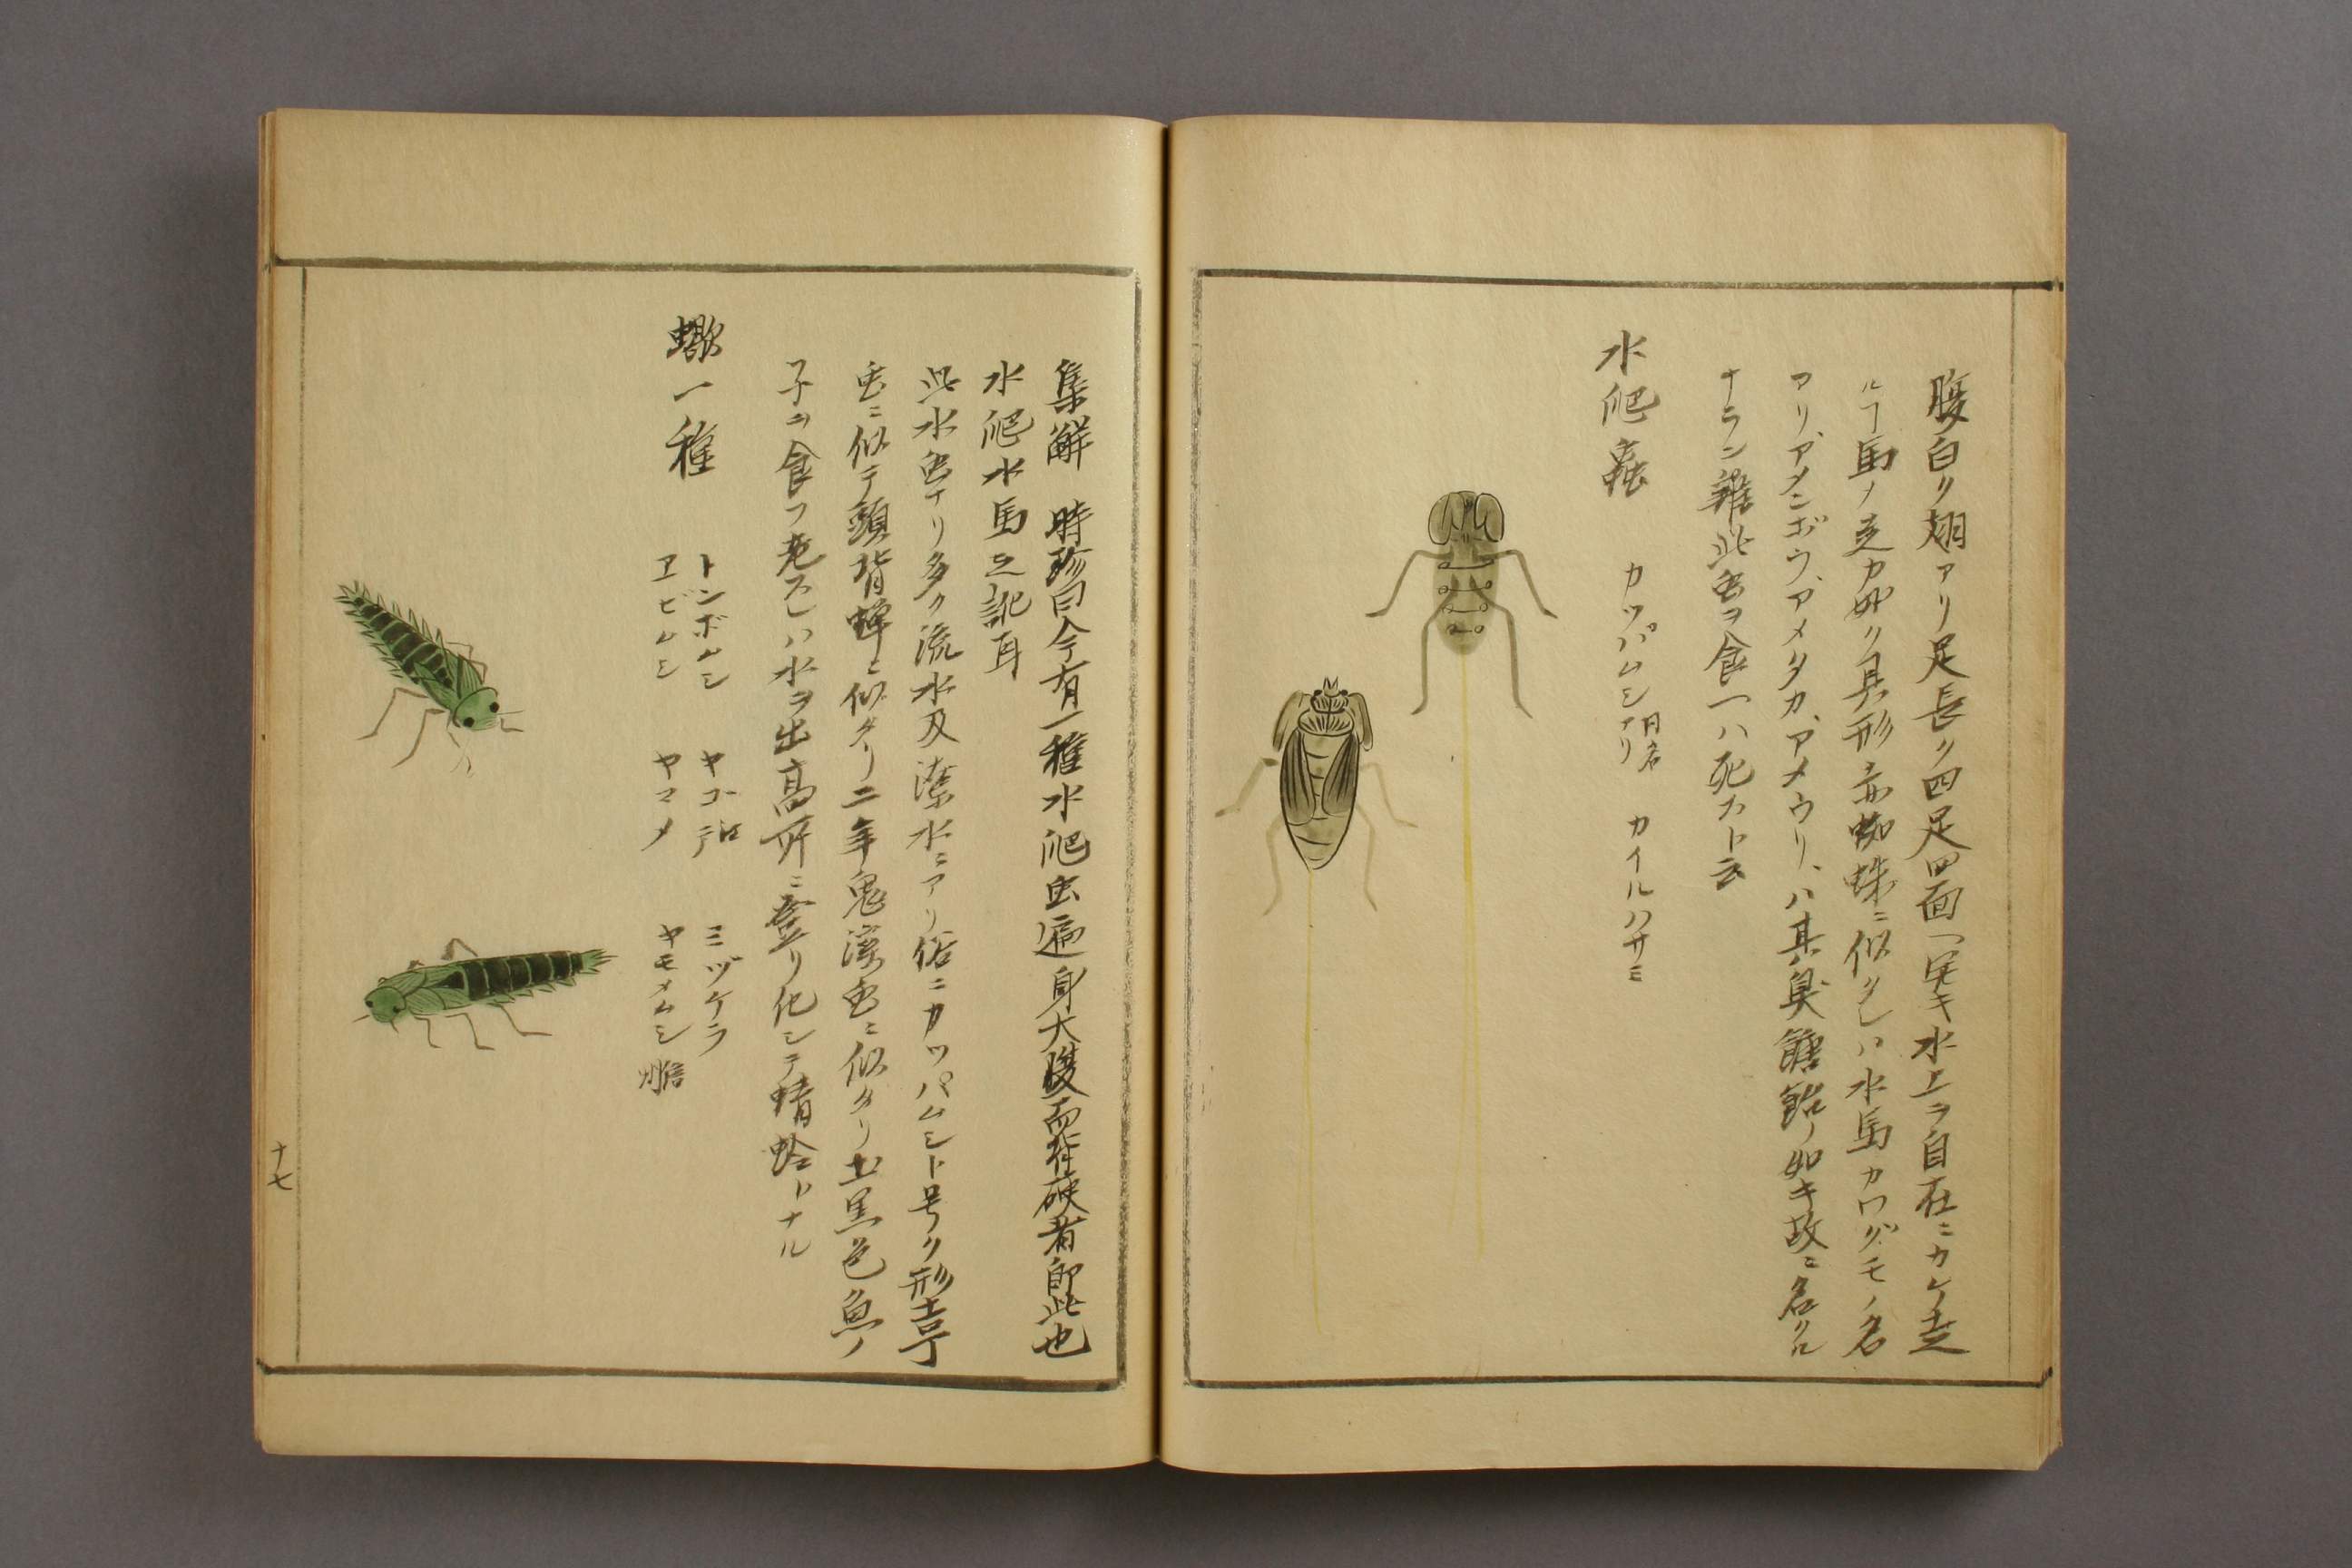 腹白ク翅アリ足長ク四足四面ヘ突キ水上ヲ自在ニカケ走
ルヿ馬ノ走カ如ク其形亦蜘蛛ニ似タレハ水馬カワグモノ名
アリ、アメンボウ、アメタカ、アメウリ、ハ其臭餹飴ノ如キ故ニ名クル
ナラン雞此虫ヲ食ヘハ死スト云
水爬蟲 カッパムシ 同名アリ カイルハサミ
集解 時珍曰今有一種水爬虫遍身大腹而背硬者即此也
水爬水馬之訛耳
此水虫ナリ多ク流水及潦水ニアリ俗ニカッパムシト号ク形
虫ニ似テ頭背蝉ニ似タリ二年鬼溪虫ニ似タリ土黒色魚ノ
子ヲ食フ老スレハ水ヲ出高所ニ登リ化シテ蜻蛉トナル
蠍一種 トンボムシ ヤゴ ミヅケラ
エビムシ ヤマメ ヤモメムシ
十七